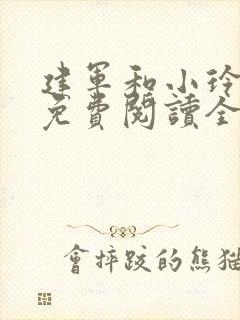 建軍和小玲
免費閱讀全
會摔跤的熊貓